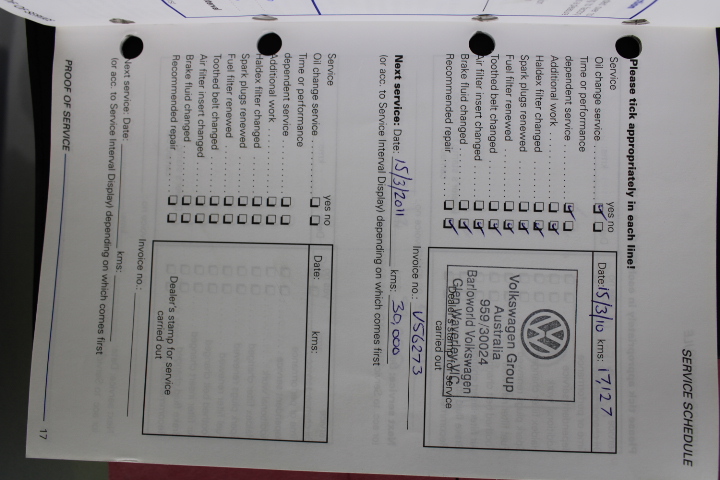 SERVICE SCHEDULE
Please tick appropriately in each line!
Service yes no
Oil change service
Time or performance
dependent service
Additional work
Haldex filter changed
Spark plugs renewed
Fuel filter renewed
Toothed belt changed
Air filter insert changed
Brake fluid changed
Recommended repair
Date: 15/3/10 kms: 17,127
Volkswagen Group
Australia
959/30024
Barloworld Volkswagen
Glen Waverley VIC
Dealer's stamp for service
carried out
Invoice no.: V56273
Next service: Date: 15/3/2011 kms: 30,000
(or acc. to Service Interval Display) depending on which comes first
Service yes no
Oil change service
Time or performance
dependent service
Additional work
Haldex filter changed
Spark plugs renewed
Fuel filter renewed
Toothed belt changed
Air filter insert changed
Brake fluid changed
Recommended repair
Date: kms:
Dealer's stamp for service
carried out
Invoice no.:
Next service: Date: kms:
(or acc. to Service Interval Display) depending on which comes first
PROOF OF SERVICE 17